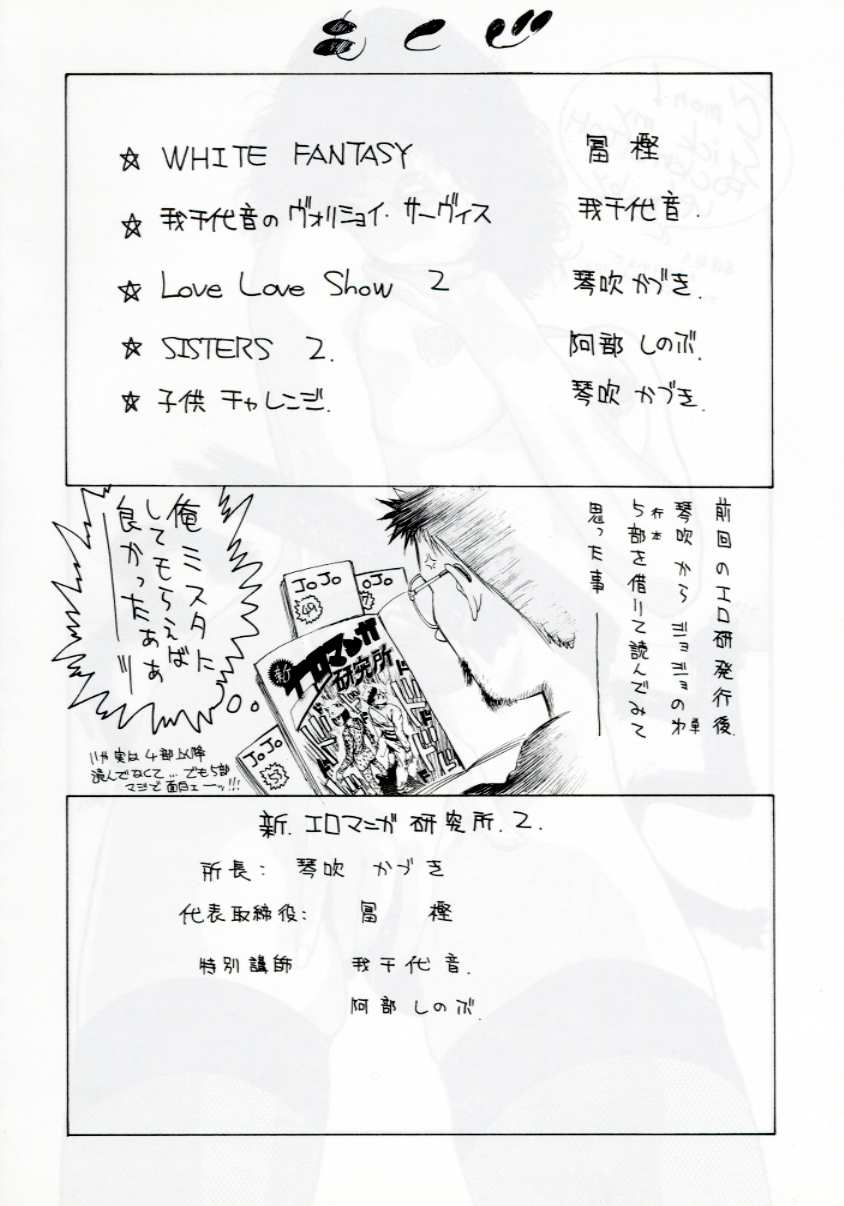 もくじ
☆ WHITE FANTASY 冨樫
☆ 我千代音の ヴォリショイ・サーヴィス 我千代音.
☆ Love Love Show 2 琴吹かづき.
☆ SISTERS 2. 阿部しのぶ.
☆ 子供チャレンジ. 琴吹かづき.
前回のエロ研発行後
琴吹からジョジョの単
行本
5部を借りて読んでみて
思った事
俺ミスタに
してもらえば
良かったぁぁ
ーッ
JoJo
49
JoJo
JoJo
新エロマンガ
研究所
いや実は4部以降
読んでなくて…でも5部
マジで面白ェーッ!!!
新.エロマンガ研究所.2.
所長: 琴吹かづき
代表取締役: 冨樫
特別講師 我千代音.
阿部しのぶ.